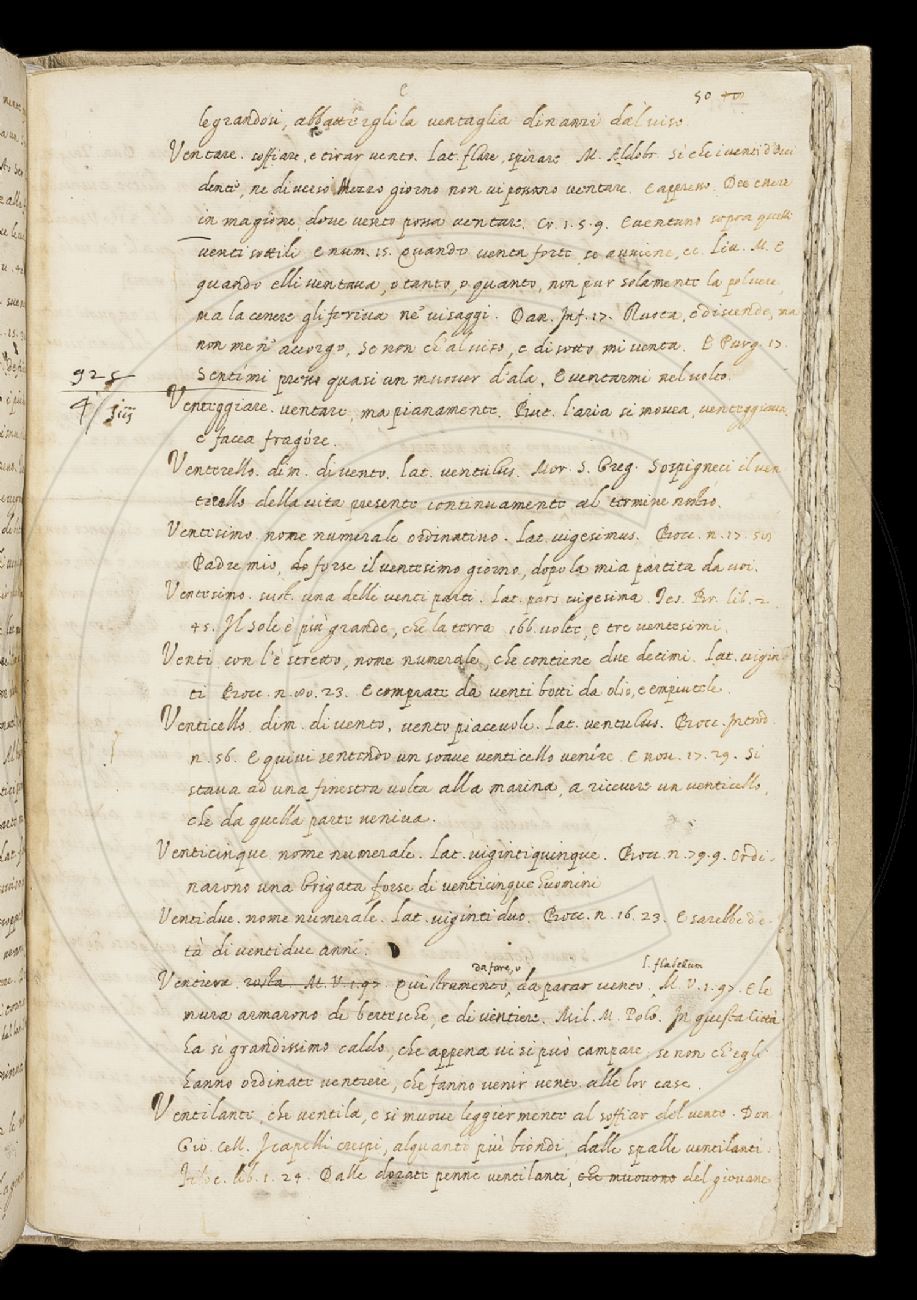 50
legrandosi, abbattégli la ventaglia dinanzi dal viso.
Ventare. soffiare, e tirar vento. Lat. flare, spirare. M. Aldobr. Si che i venti d'occi
dente, ne di verso Mezzo giorno non vi possono ventare. E appresso. Dee essere
in magione, dove vento possa ventare. Cr. 1. 5. 9. E ventano sopra quelli
venti sottili E num. 15. Quando venta forte, se avviene, ec. Liv. M. E
quando elli ventava, o tanto, o quanto, non pur solamente la polvere,
ma la cenere gli feriva ne' visaggi. Dan. Inf. 17. Ruota, e discende, ma
non me n' accorgo, Se non ch'al viso, e di sotto mi venta. E Purg. 17.
Sentími presso quasi un muover d'ala, E ventarmi nel volto.
925
4/
Venteggiare. ventare, ma pianamente. But. l'aria si movea, venteggiava,
e facea fragóre.
Venterello. dim. di vento. lat. ventulus. Mor. S. Greg. Sospigneci il ven
terello della vita presente continuamente al termine nostro.
Ventesimo. nome numerale ordinativo. Lat. vigesimus. Bocc. n. 17. 50.
Padre mio, do forse il ventesimo giorno, dopo la mia partita da voi.
Ventesimo. sust. una delle venti parti. Lat. pars vigesima. Tes. Br. lib. 2.
45. Il Sole è più grande, che la terra 166. volte, e tre ventesimi.
Venti. con l'è stretto, nome numerale, che contiene due decine. Lat. vigin
ti Bocc. n. 80. 23. E comprate da venti botti da olio, e empiutele.
Venticello. dim. di vento, vento piacevole. Lat. ventulus. Bocc. Introd.
n. 56. E quivi sentendo un soave venticello venire. E nov. 17. 29. Si
stava ad una finestra volta alla marina, a ricevere un venticello,
che da quella parte veniva.
Venticinque nome numerale. Lat. vigintiquinque. Bocc. n. 79. 9. Ordi
narono una brigata forse di venticinque huomini
Ventidue. nome numerale. Lat. viginti duo. Bocc. n. 16. 23. E sarebbe d'e
tà di ventidue anni.
da fare, o l. flabellum
Ventiera. rosta. M. V. 1. 97. Qui strumento, da parar vento. M. V. 1. 97. E le
mura armarono di bertesche, e di ventiere. Mil. M. Polo. In questa Città
ha sì grandissimo caldo, che appena vi si può campare, se non ch'egli
hanno ordinate ventiere, che fanno venir vento alle lor case.
Ventilante. che ventila, e si muove leggiermente al soffiar del vento. Don
Gio. Cell. I capelli crespi, alquanto più biondi, dalle spalle ventilanti.
Filoc. lib. 1. 24. Dalle dorate penne ventilanti, che muovono del giovane